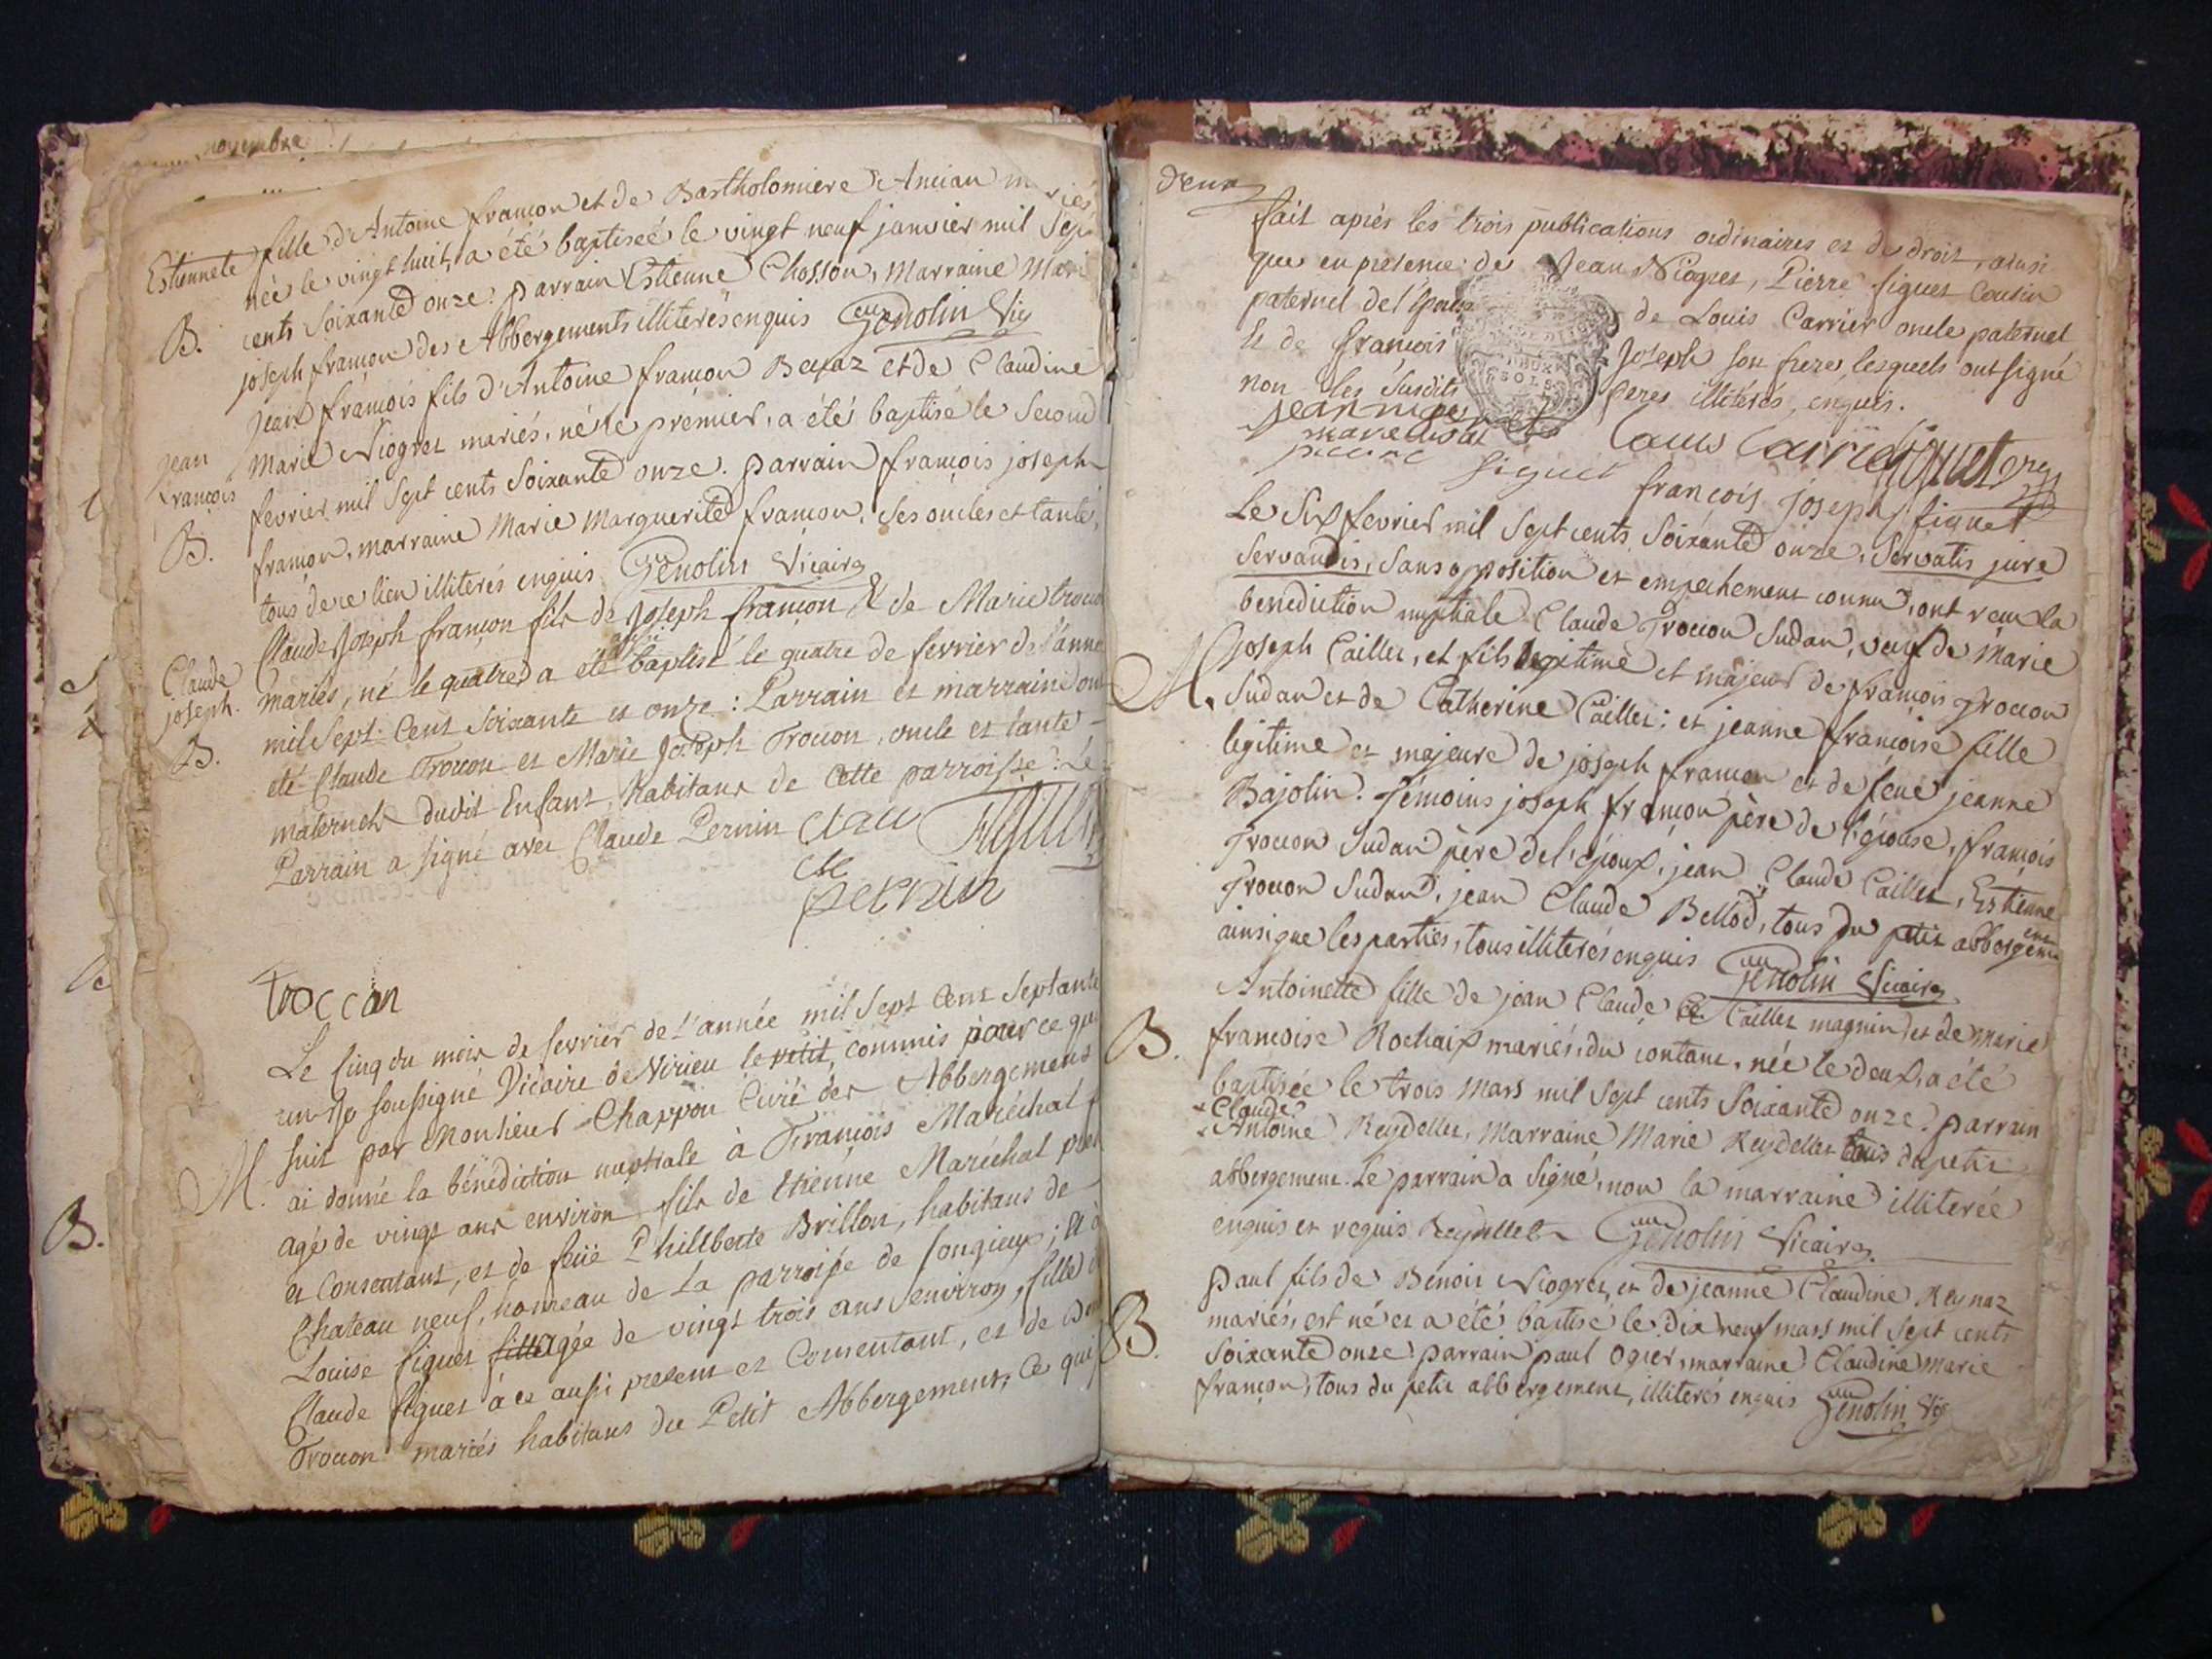 novembre
Estiennete fille d'Antoine françon et de Bartholomiere Ancian mariés
née le vingt huit, a été baptiseé le vingt neuf janvier mil Sept
B. cents Soixante onze. parrain Estienne Chosson, Marraine Marie
joseph françon des Abbergements illiterés enquis Genolin Vic
Jean françois fils d'Antoine françon et de Claudine
Jean françois
Marie Niogret mariés, né le prémier, a étés baptisé le Second
fevrier mil Sept cents Soixante onze. parrain françois joseph
B. françon, marraine Marie Marguerite françon, Ses oncles et tante,
tous de ce lieu illiterés enquis Genolin Vicaire
Claude Joseph françon fils de Joseph françon & de Marie
Claude joseph.
mariés, né le quatre a été aussi baptisé le quatre de fevrier de l'année
mil Sept Cent Soixante et onze : Parrain et marraine ont
B.
été Claude Trocon et Marie Joseph Trocon, oncle et tante
maternels dudit Enfant, habitans de Cette parroisse : Le
Parrain a signé avec Claude Pernin
pernin
troccon
Le Cinq du mois de fevrier de l'année mil Sept Cent Septante
un Je soussigné Vicaire de Virieu le petit, commis pour ce qui
suit par Monsieur Chappon Curé des Abbergements
M. ai donné la bénédiction nuptiale à François Maréchal
agé de vingt ans environ fils de Etienne Maréchal
et Consentant, et de feüe Philiberte Brillon, habitans de
Chateau neuf, hameau de La parroisse de Songieux ; &
Louise figuet agée de vingt trois ans environ, fille
Claude figuet à ce aussi present et Consentant, et de
Trocon mariés habitans du Petit Abbergement, Ce qui
B.
deux
fait après les trois publications ordinaires et de droit, ainsi
que en presence de Jean Niogret, Pierre figuet Cousin
paternel de l'Epouse de Louis Carrier oncle paternel
Et de françois Joseph son frere, lesquels ont signé
non les Susdits peres illitérés, enquis.
SOLS
jean
pierre figuet
françois joseph figuet
Le Six fevrier mil Sept cents Soixante onze, Servatis jure
Servandis, Sans opposition et empechement connu, ont reçu la
benediction nuptiale Claude Trocon Sudan, veuf de Marie
joseph Caillet, et fils legitime et majeur de françois Trocon
M. Sudan et de Catherine Caillet ; et jeanne françoise fille
legitime et majeure de joseph françon et de feüe jeanne
Bajolin. Témoins joseph françon père de l'épouse, françois
Trocon Sudan père de l'époux, jean Claude Caillet, Estienne
Trocon Sudan, jean Claude Bellod, tous du petit abbergement
ainsi que les parties, tous illiterés enquis Genolin Vicaire
Antoinette fille de jean Claude Caillet magnin et de Marie
B. françoise Rochaix mariés, du contant, née le deux, a été
baptisée le trois Mars mil Sept cents Soixante onze. parrain
Claude
Antoine Reydellet, Marraine Marie Reydellet tous du petit
abbergement. Le parrain a Signé, non la marraine illiterée
enquis et requis Reydellet Genolin Vicaire
paul fils de Benoit Niogret, et de jeanne Claudine Reynaz
mariés, est né et a étés baptisé le dix neuf mars mil Sept cents
B. Soixante onze. parrain paul Ogier, marraine Claudine Marie
françon, tous du petit abbergement, illiterés enquis Genolin Vic